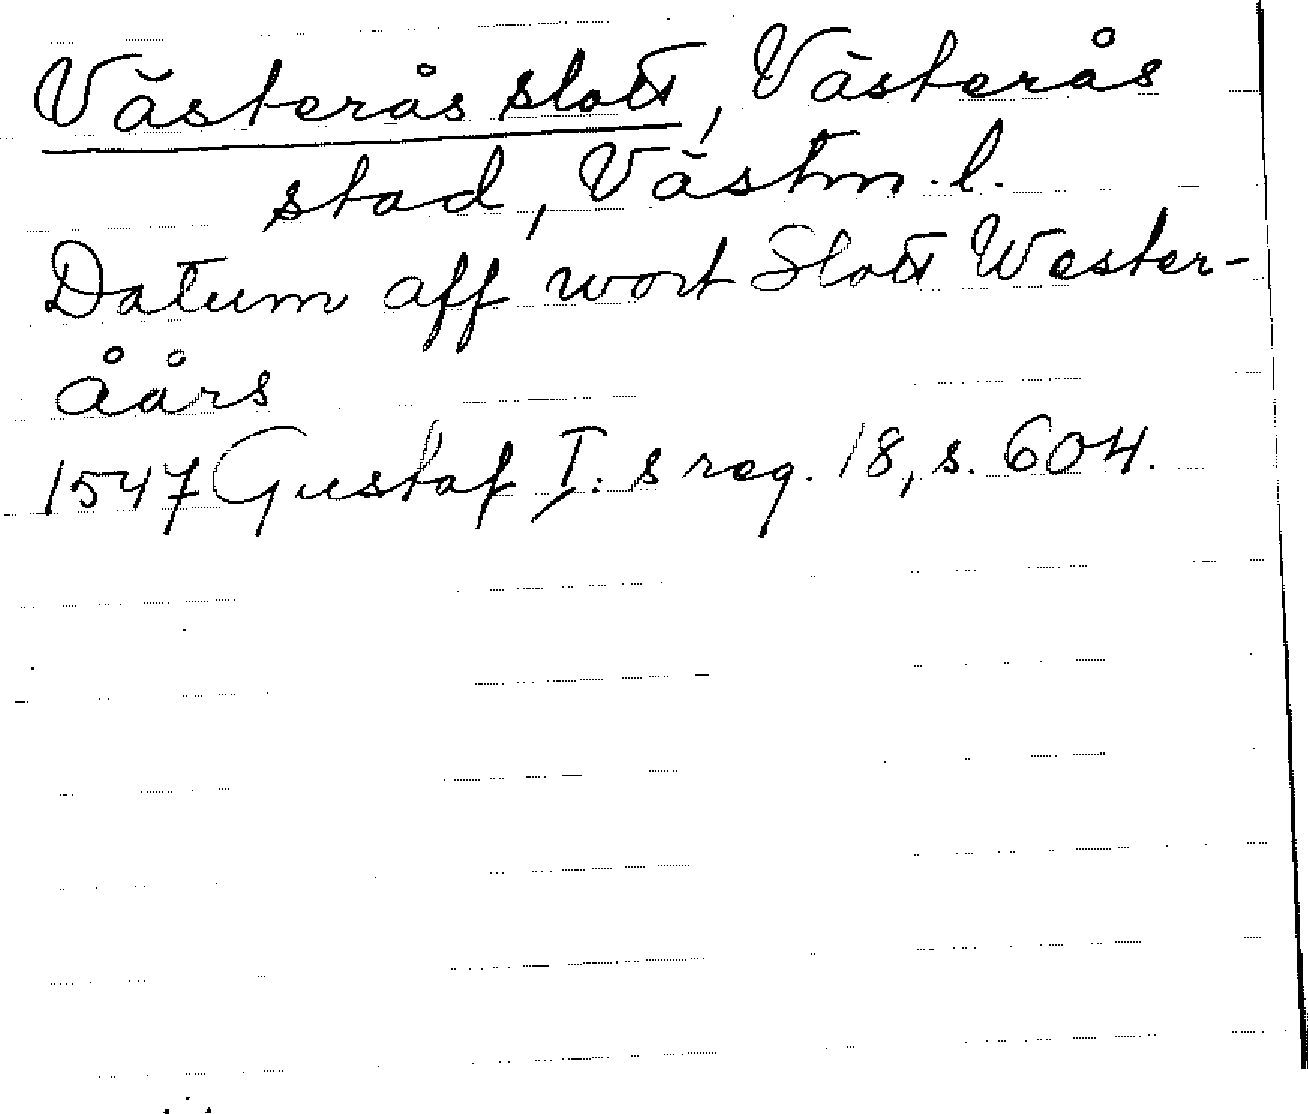 Västerås slott, Västerås
stad, Västm. l.
Datum aff wort Slott Wester-
åårs
1547 Gustaf I: s reg. 18, s. 604.